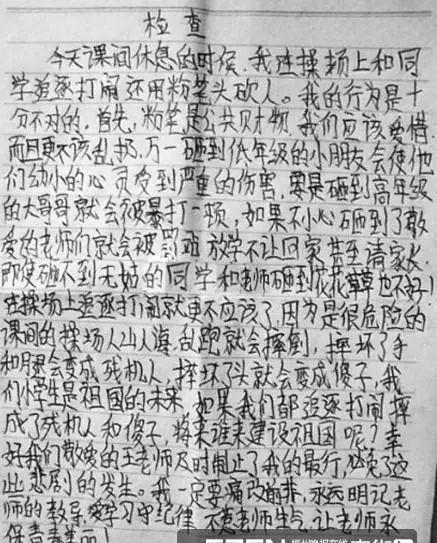 检查
今天课间休息的时候,我在操场上和同
学追逐打闹还用粉笔头砍人。我的行为是十
分不对的,首先,粉笔是公共财物,我们应该爱惜
而且更不该乱扔,万一砸到低年级的小朋友会使他
们幼小的心灵受到严重的伤害,要是砸到高年级
的大哥哥就会被暴打一顿,如果不小心砸到了敬
爱的老师们就会被罚站 放学不让回家 甚至请家长.
即使砸不到无辜的同学和老师砸到花花草草也不好!
在操场上追逐打闹就更不应该了,因为是很危险的
课间的操场人山人海,乱跑就会摔倒,摔坏了手
和腿会变成残机人,摔坏了头就会变成傻子,我
们小学生是祖国的未来,如果我们都追逐打闹摔
成了残机人和傻子,将来谁来建设祖国呢?幸
好我们敬爱的王老师及时制止了我的最行,避免了这
些悲剧的发生。我一定要痛改前非,永远明记老
师的教导,学习守纪律 不惹老师生气,让老师永
保青春美丽!